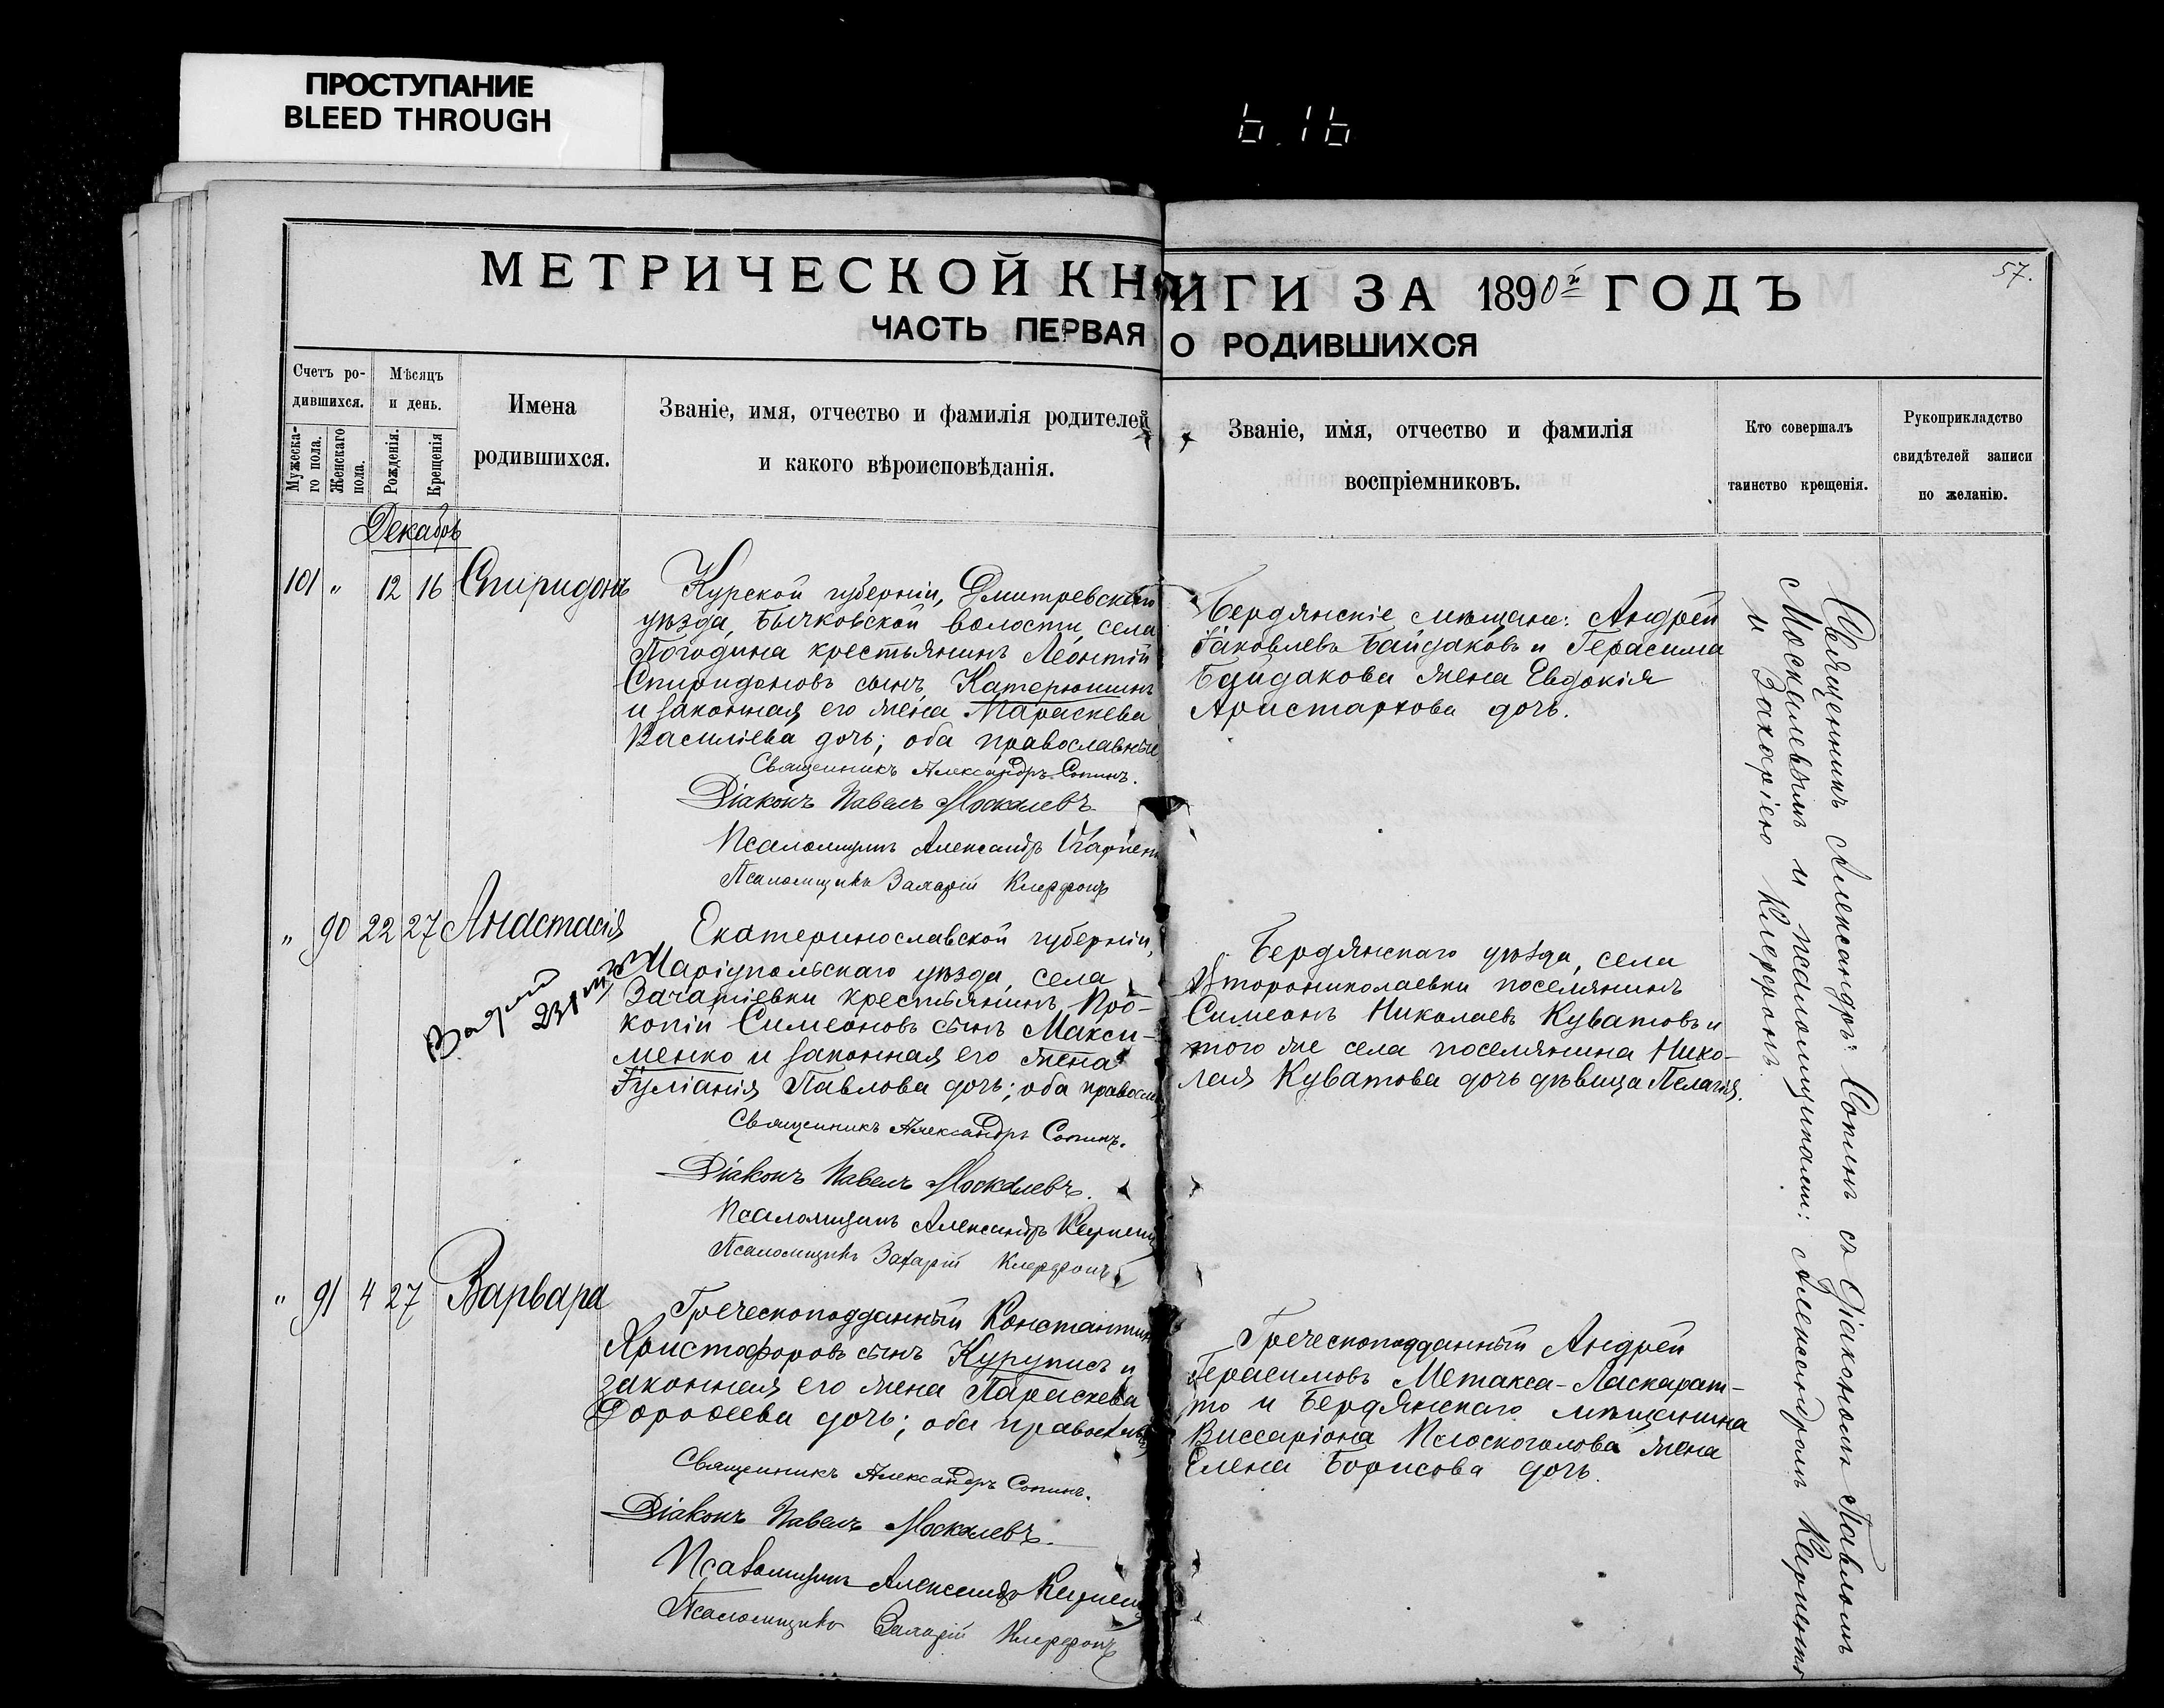 ПРОСТУПАНИЕ
BLEED THROUGH
МЕТРИЧЕСКОЙ КНИГИ ЗА 1890й ГОДЪ
57.
ЧАСТЬ ПЕРВАЯ О РОДИВШИХСЯ
Счетъ ро-
дившихся.
Мужеска-
го пола.
Женскаго
пола.
Мѣсяцъ
и день.
Рожденія.
Крещенія
Имена
родившихся.
Званіе, имя, отчество и фамилія родителей
и какого вѣроисповѣданія.
Званіе, имя, отчество и фамилія
воспріемниковъ.
Кто совершалъ
таинство крещенія.
Рукоприкладство
свидѣтелей записи
по желанію.
Декабрь
101 " 12 16 Спиридонъ
Курской губерніи, Дмитревскаго
уѣзда, Бычковской волости, села
Погодина крестьянинъ Леонтій
Спиридоновъ сынъ Катерюшинъ
и законная его жена Параскева
Василіева дочь; оба православные
Священникъ Александръ Сопинъ.
Діаконъ Павелъ Москалевъ
Псаломщикъ Александръ
Псаломщикъ Захарій
Бердянскіе мѣщане: Андрей
Іаковлевъ Байдаковъ и Герасима
Байдакова жена Евдокія
Аристархова дочь.
Священникъ Александръ Сопинъ съ Діакономъ Павломъ
Москалевымъ и псаломщиками: Александромъ
и Захаріею
" 90 22 27 Анастасія
Екатеринославской губерніи,
Маріупольскаго уѣзда, села
Зачатіевки крестьянинъ Про-
копій Симеоновъ сынъ Макси-
менко и законная его жена
Іуліанія Павлова дочь; оба правосл
Священникъ Александръ Сопинъ.
Діаконъ Павелъ Москалевъ.
Псаломщикъ Александръ
Псаломщикъ Захарій
Бердянскаго уѣзда, села
Второниколаевки поселянинъ
Симеонъ Николаевъ Куватовъ и
того же села поселянина Нико-
лая Куватова дочь дѣвица Пелагія.
" 91 4 27 Варвара
Греческоподданный Константинъ
Христофоровъ сынъ Куруписъ и
законная его жена Параскева
Дороѳеева дочь; оба правосл
Священникъ Александръ Сопинъ.
Діаконъ Павелъ Москалевъ.
Псаломщикъ Александръ
Псаломщикъ Захарій
Греческоподданный Андрей
Герасимовъ Метакса-Ласкарат-
то и Бердянскаго мѣщанина
Виссаріона Плоскоголова жена
Елена Борисова дочь.